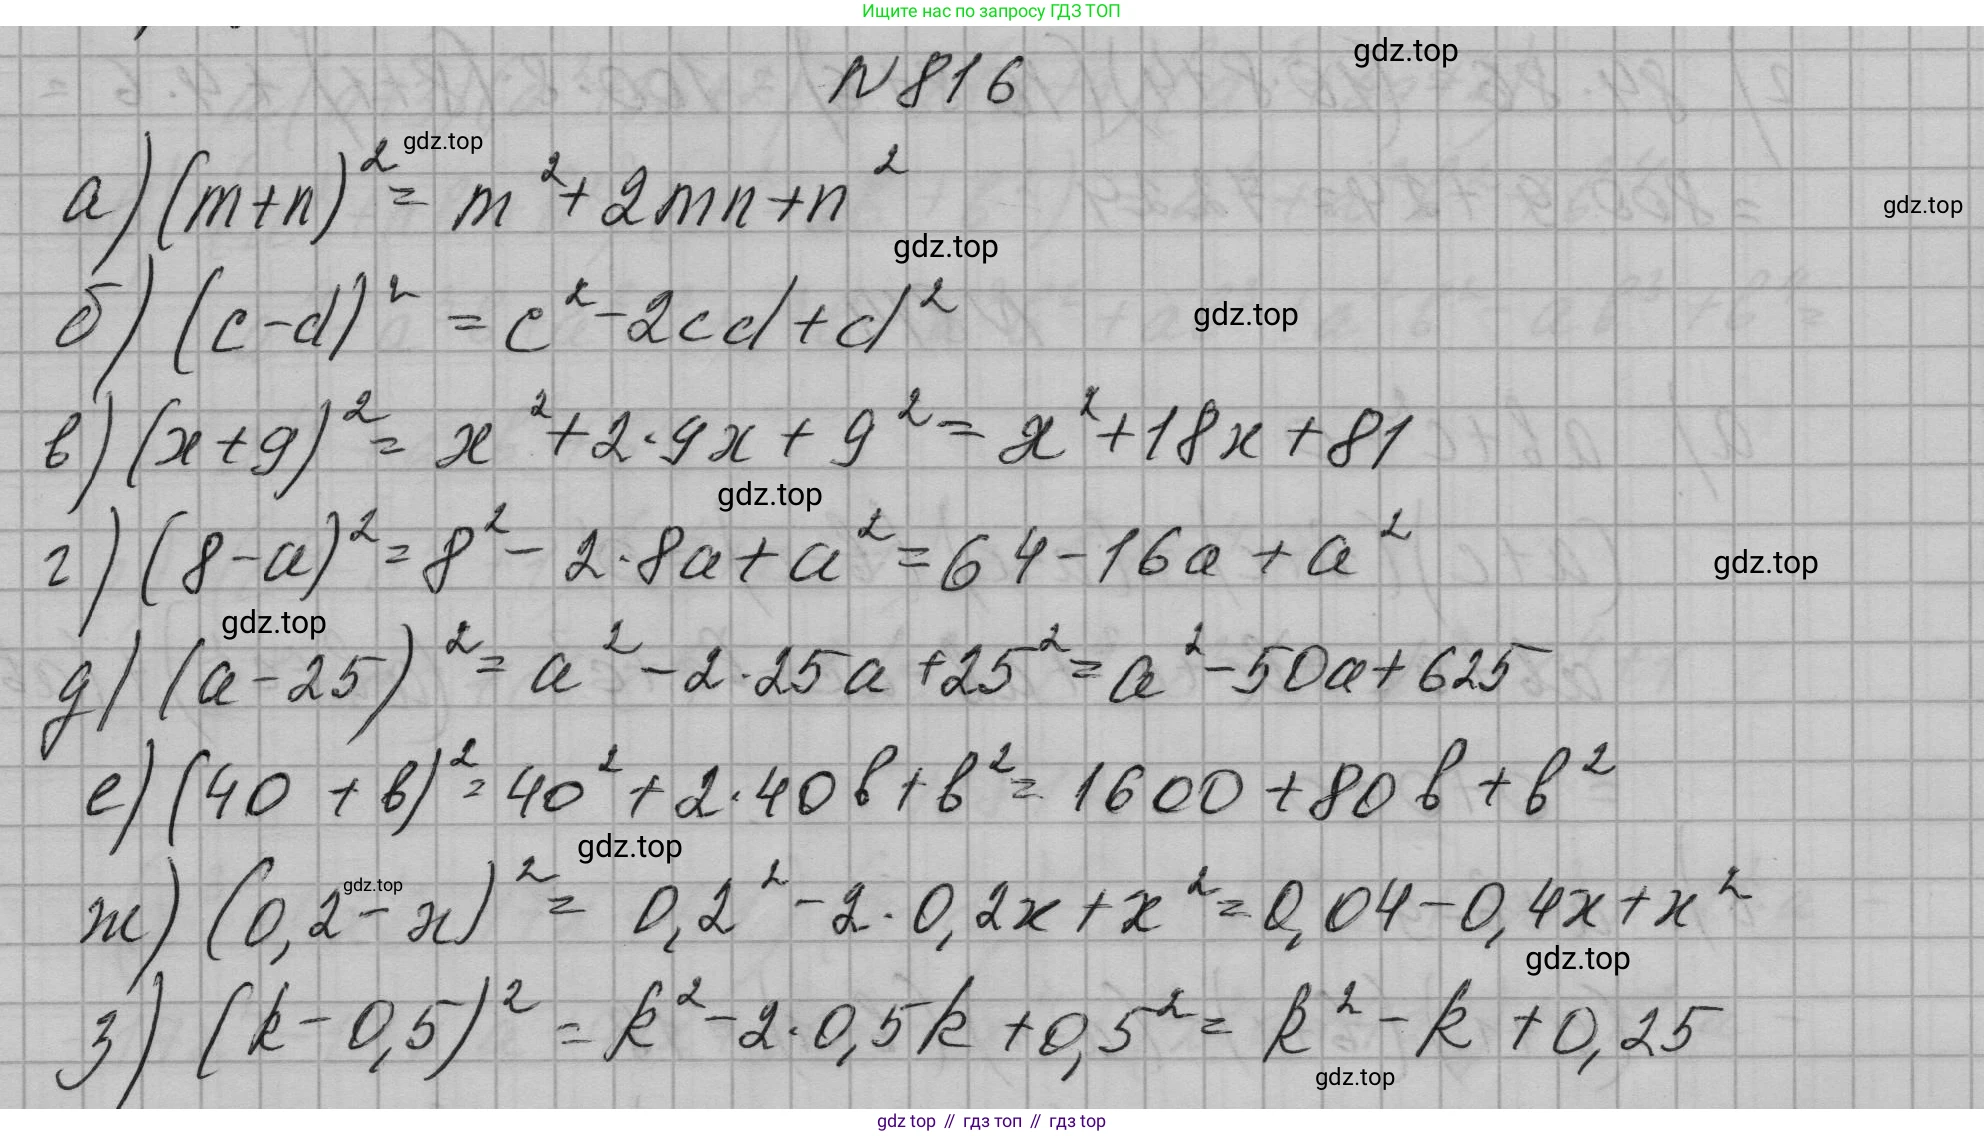 Ищите нас по запросу ГДЗ ТОП
gdz.top
N 816
gdz.top
а) (m+n)² = m² + 2mn + n²
gdz.top
gdz.top
б) (c-d)² = c² - 2cd + d²
gdz.top
в) (x+9)² = x² + 2·9x + 9² = x² + 18x + 81
gdz.top
г) (8-a)² = 8² - 2·8a + a² = 64 - 16a + a²
gdz.top
gdz.top
д) (a-25)² = a² - 2·25a + 25² = a² - 50a + 625
е) (40 + в)² = 40² + 2·40в + в² = 1600 + 80в + в²
gdz.top
gdz.top
ж) (0,2 - x)² = 0,2² - 2·0,2x + x² = 0,04 - 0,4x + x²
gdz.top
з) (k - 0,5)² = k² - 2·0,5k + 0,5² = k² - k + 0,25
gdz.top
gdz top // гдз топ // гдз top